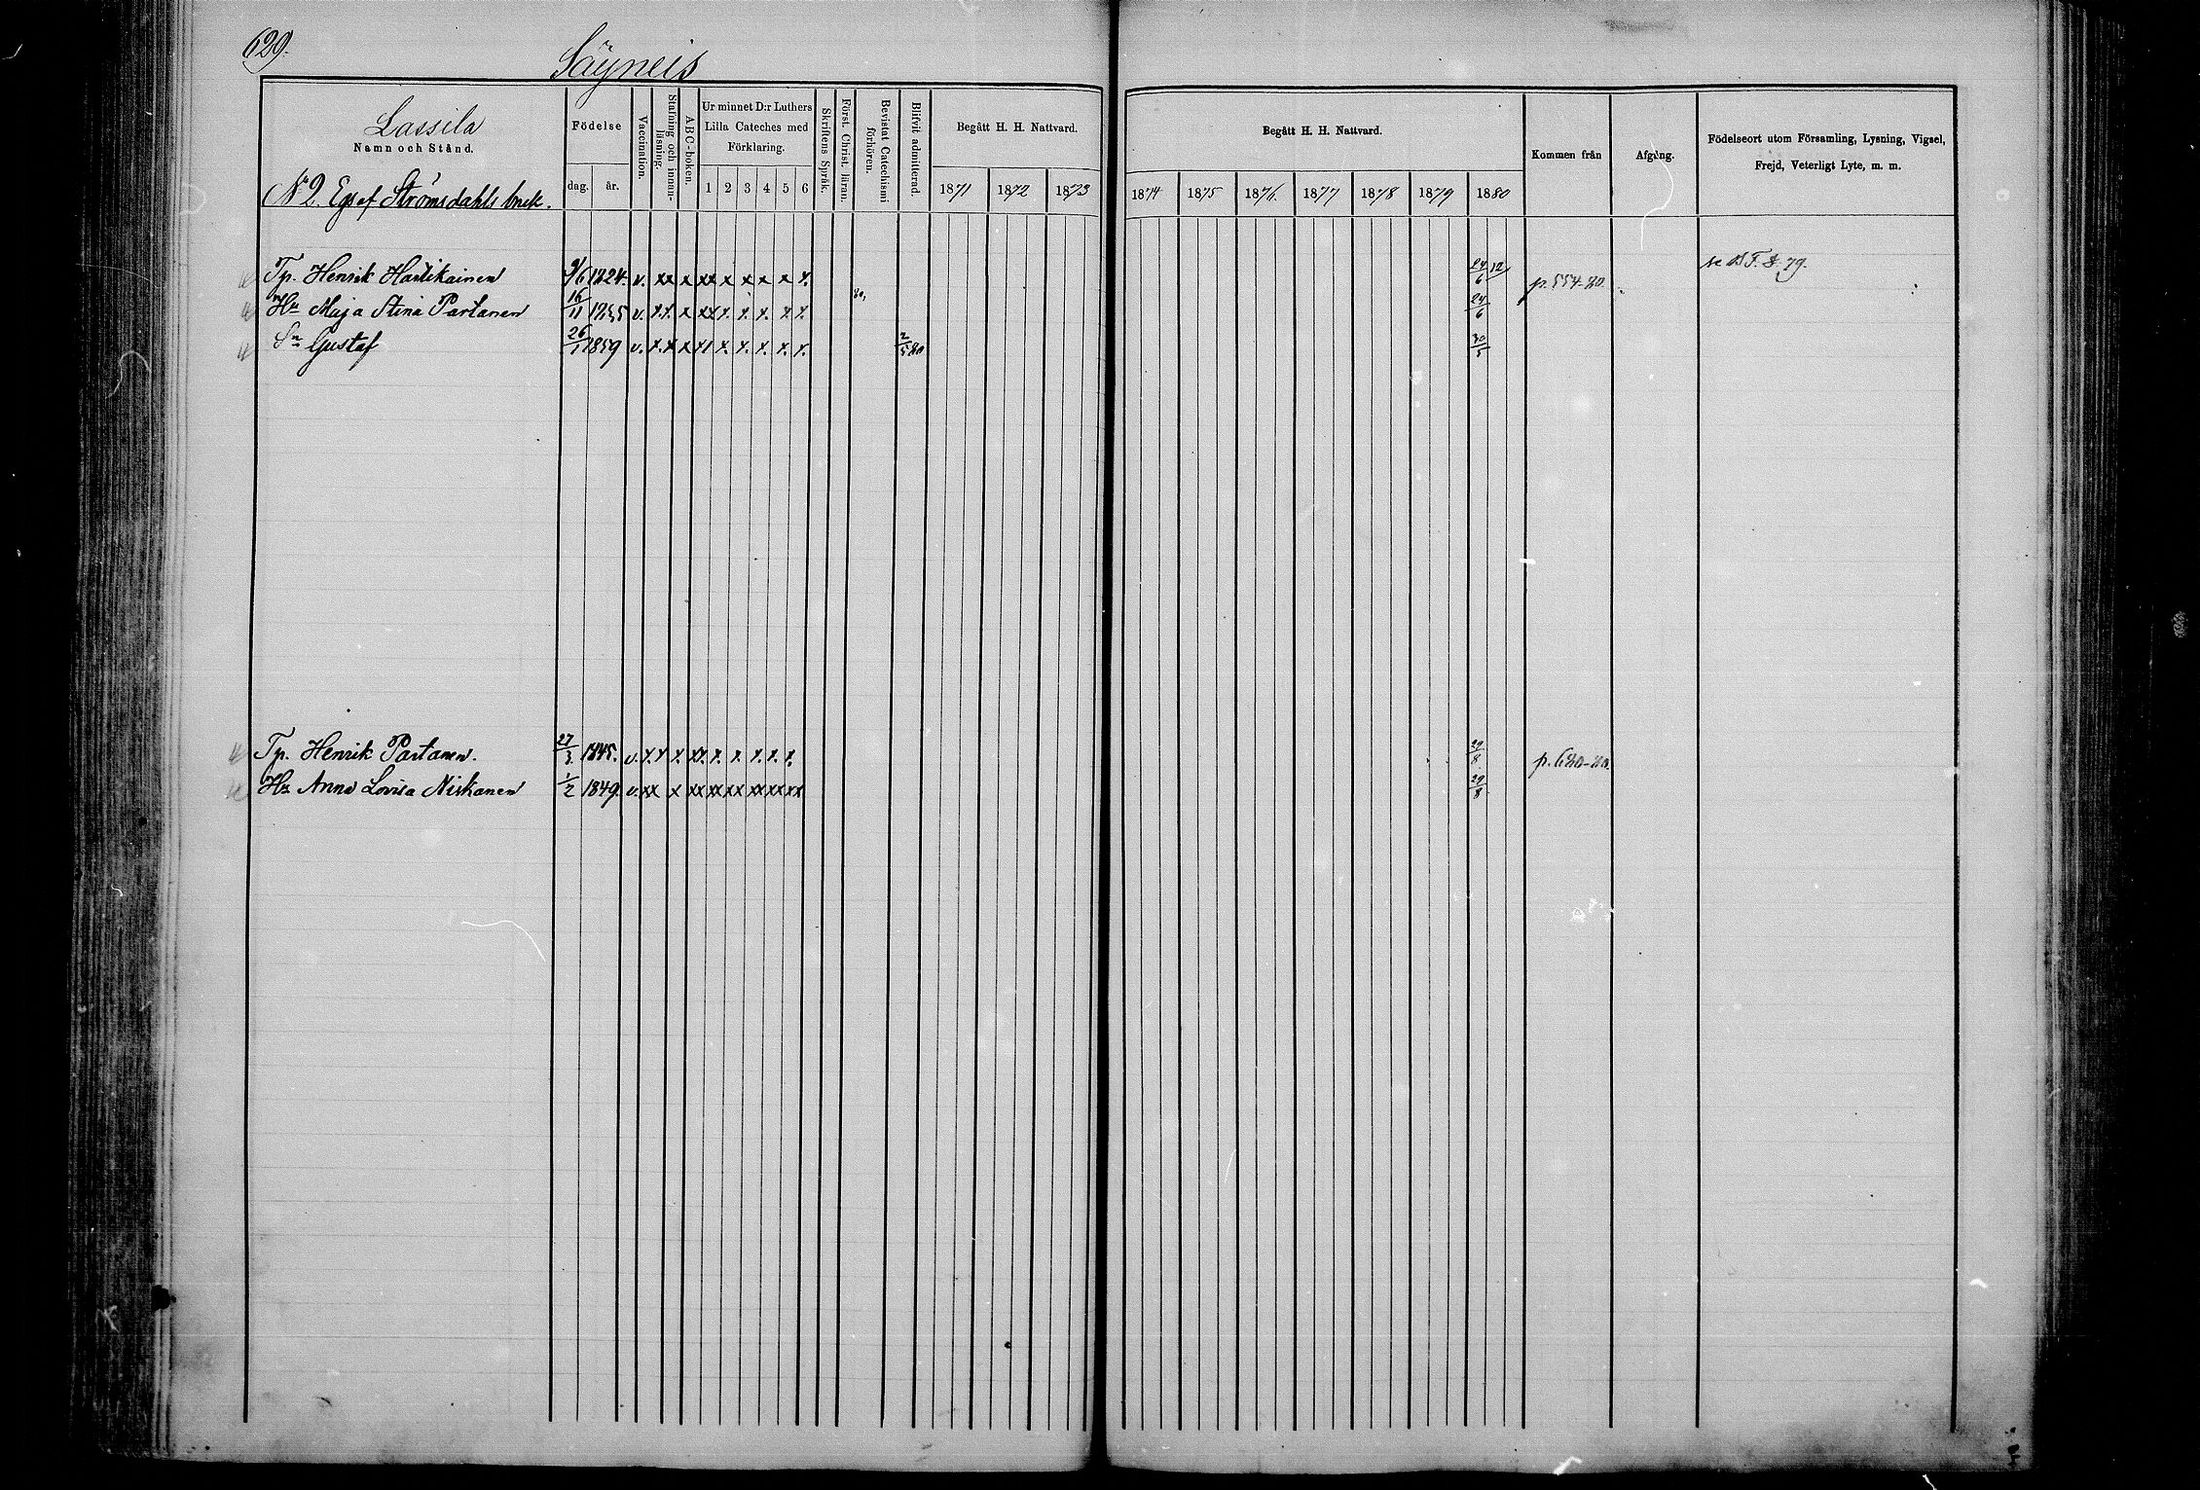 629.
Säyneis
Lassila
Namn och Stånd.
No 2. Eges af Strömsdahls bruk.
Födelse
dag. år.
Vaccination.
Stafning och innan-läsning.
ABC-boken.
Ur minnet D:r Luthers
Lilla Cateches med
Förklaring.
1 2 3 4 5 6
Skriftens Språk.
Först. Christ. läran.
Bevistat Catechismi förhören.
Blifvit admitterad.
Begått H. H. Nattvard.
1871 1872 1873
Begått H. H. Nattvard.
1874 1875 1876 1877 1878 1879 1880
Kommen från
Afgång.
Födelseort utom Församling, Lysning, Vigsel,
Frejd, Veterligt Lyte, m. m.
Tp. Henrik Hartikainen 9/6 1824. v. xx x xx x x x x x. 24/6 12/ p. 554-80
Hu Maja Stina Partanen 16/11 v. x.x. x xx x. x. x. x x. 80, 24/6
Sn Gustaf 26/1 1859 v. x. x x x1 x. x. x. x. x. 2/5 80 30/5
Tp. Henrik Partanen. 27/3 1845. v. x x x. xx. x. x. x. x. x. 29/8 p. 680-80.
Hu Anna Lovisa Niskanen 1/2 1849. v. xx x xx xx xx xx xx xx 29/8